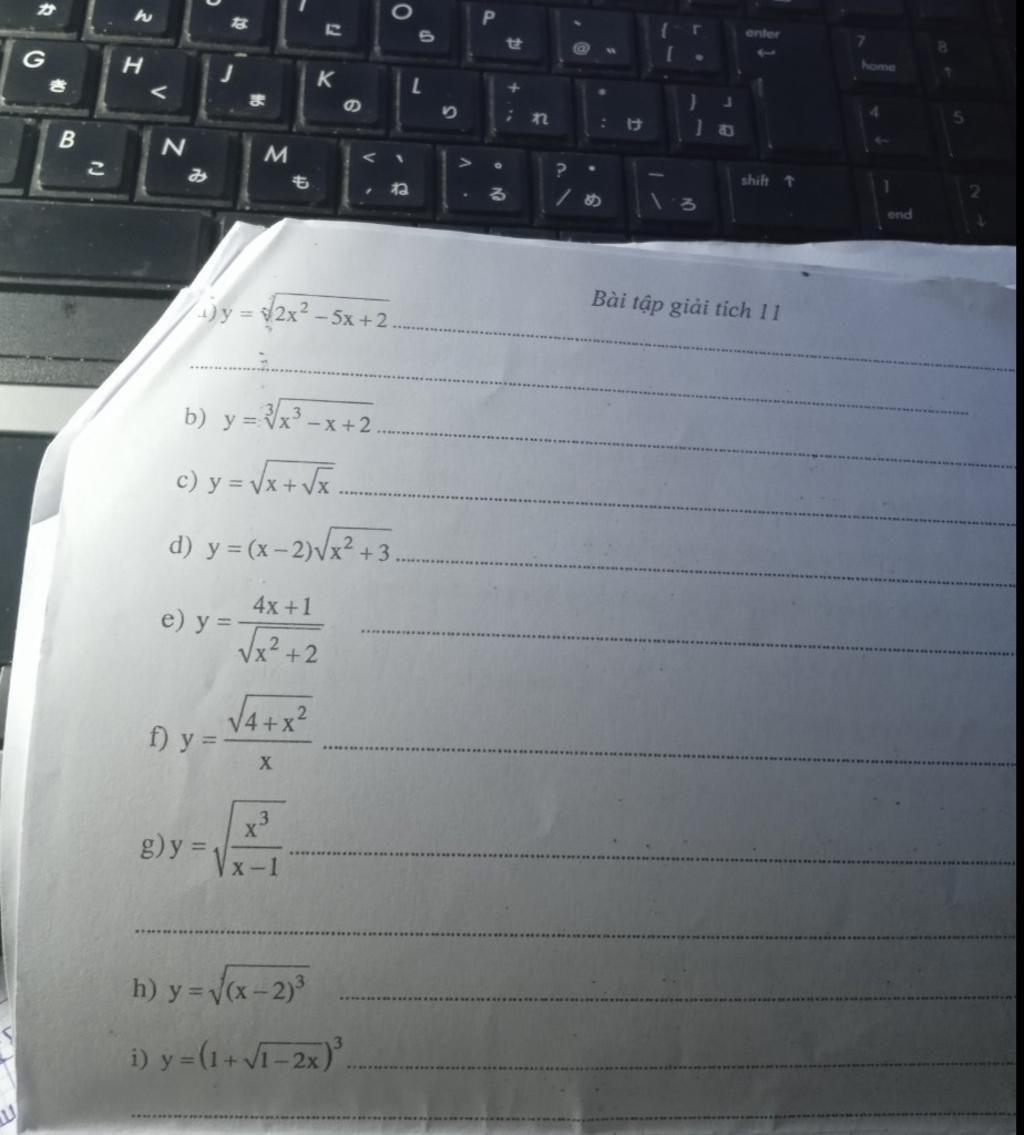 か ん な に O ら P せ ` @ “ { 「 [ ° enter ↵ 7 home 8 ↑
G き H く J ま K の L り + ; れ * : け } 」 ] む 4 ← 5
B こ N み M も < 、 , ね > 。 . る ? ・ / め _ \ ろ shift ↑ 1 end 2 ↓
Bài tập giải tích 11
) y = √2x² – 5x + 2
b) y = ∛x³ – x + 2
c) y = √x + √x
d) y = (x – 2)√x² + 3
e) y = 4x + 1 / √x² + 2
f) y = √4 + x² / x
g) y = √x³ / x – 1
h) y = √(x – 2)³
i) y = (1 + √1 – 2x)³